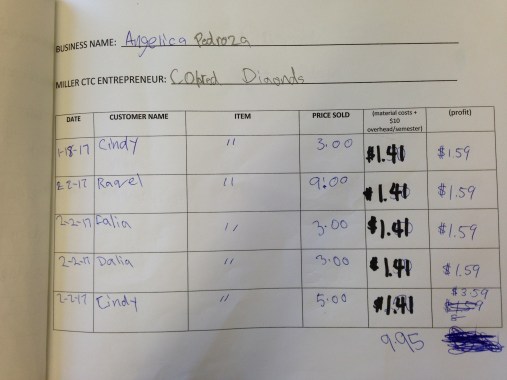 BUSINESS NAME: Angelica Pedroza
MILLER CTC ENTREPRENEUR: Colored Diaonds
DATE CUSTOMER NAME ITEM PRICE SOLD (material costs + $10 overhead/semester) (profit)
1-18-17 Cindy " 3.00 $1.41 $1.59
2-2-17 Raquel " 9.00 $1.41 $1.59
2-2-17 Dalia " 3.00 $1.41 $1.59
2-2-17 Dalia " 3.00 $1.41 $1.59
2-2-17 Cindy " 5.00 $1.41 $3.59
9.95